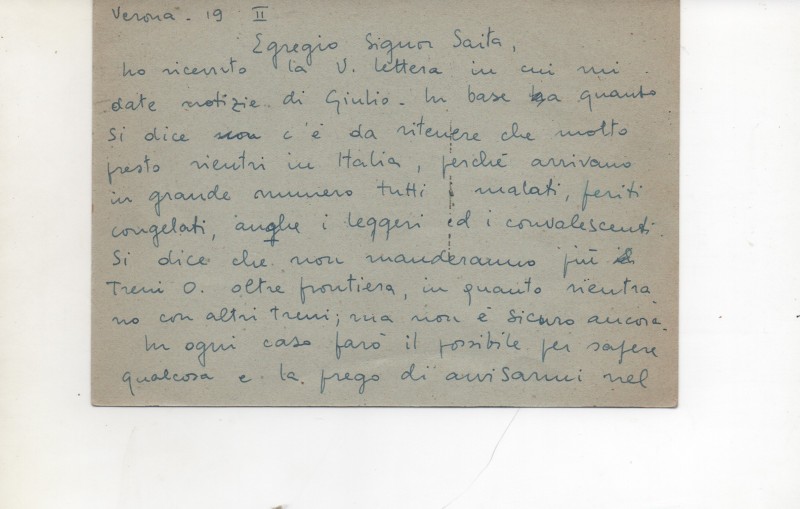 Verona - 19 II
Egregio Signor Saita,
ho ricevuto la V. lettera in cui mi
date notizie di Giulio. In base a quanto
si dice c'è da ritenere che molto
presto rientri in Italia, perché arrivano
in grande numero tutti i malati, feriti
congelati, anche i leggeri ed i convalescenti.
Si dice che non manderanno più i
Treni O. oltre frontiera, in quanto rientra
no con altri treni; ma non è sicuro ancora.
In ogni caso farò il possibile per sapere
qualcosa e la prego di avvisarmi nel